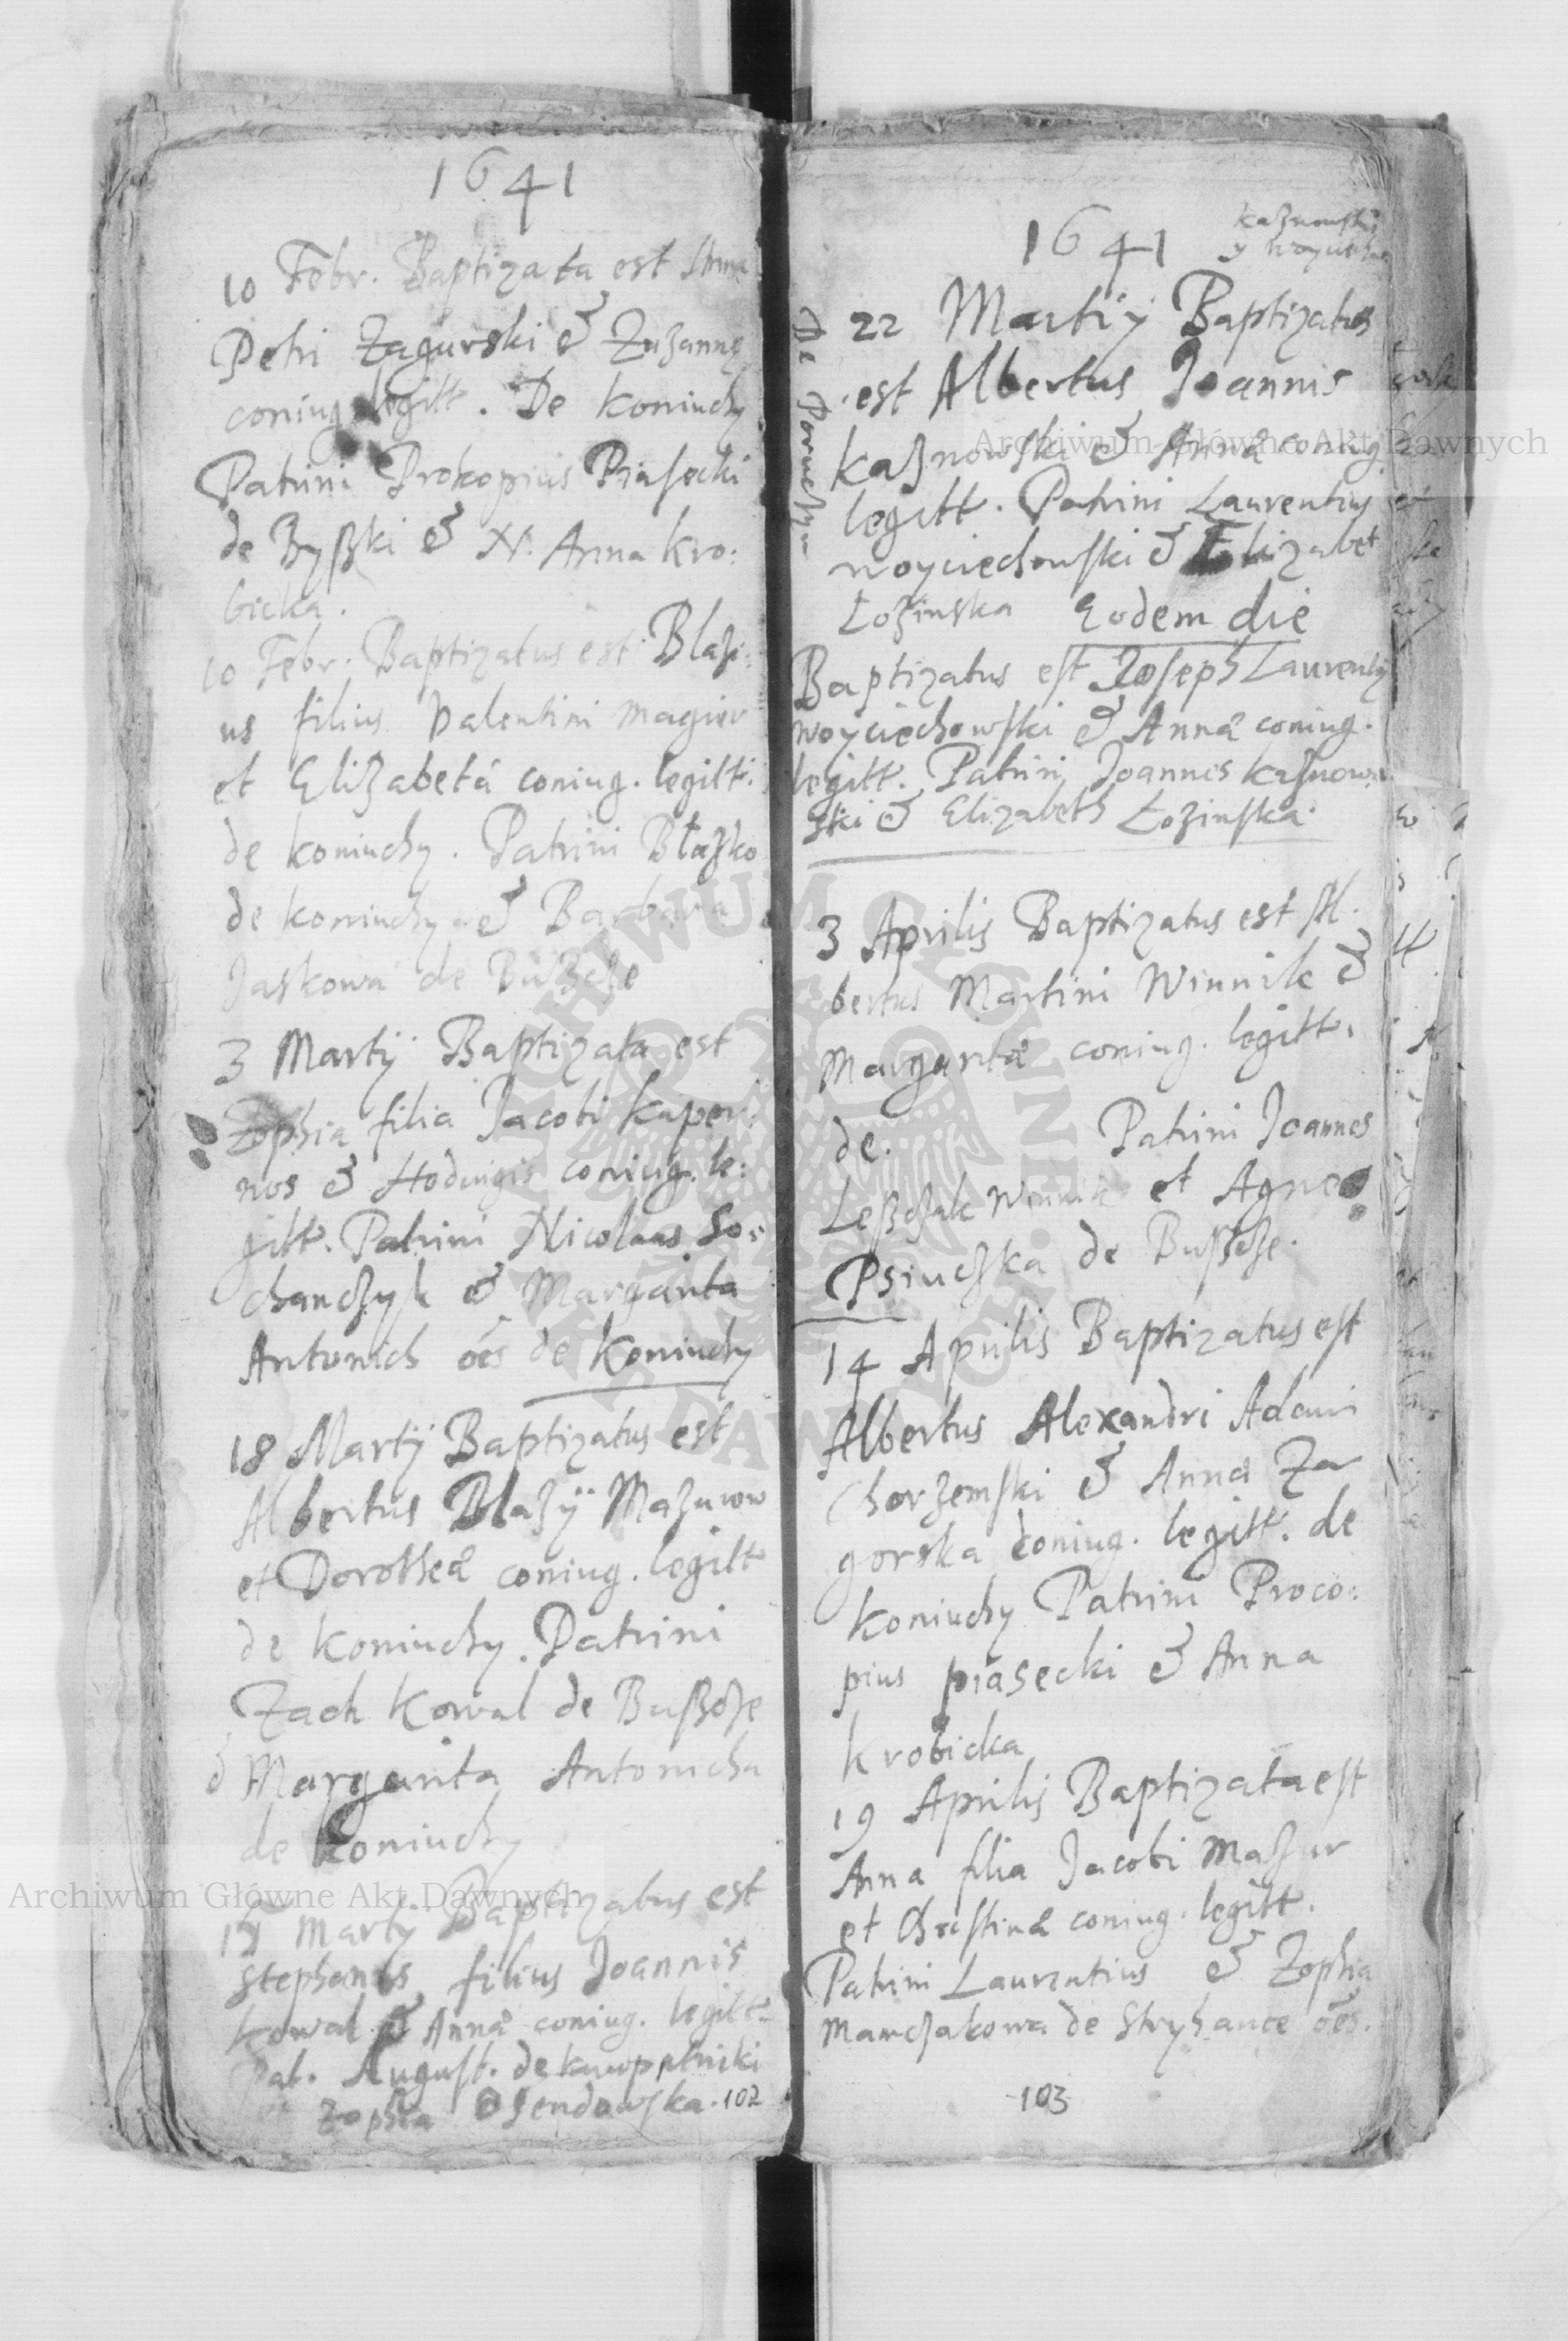 1641
10 Febr. Baptizata est Anna
Petri Zagurski & Zuzannę
coniug. legitt. De Koniuchy
Patrini Prokopius Piasecki
de Byßki & N. Anna Kro:
bicka.
10 Febr. Baptizatus est Blasi:
us filius Valentini Magier
et Elizabetâ coniug. legitt.
de Koniuchy. Patrini Błażko
de Koniuchy & Barbara
Jaskowa de Bußcze
3 Martÿ Baptizata est
Zophia filia Jacobi Kaper:
nos & Hedvigis coniug. le:
gitt. Patrini Nicolaus So:
chanczyk & Margarita
Antonich oēs de Koniuchy
18 Martÿ Baptizatus est
Albertus Blasÿ Mazurow
et Dorotheâ coniug. legitt
de Koniuchy. Patrini
Zach Kowal de Bußcze
& Margarita Antonicha
de Koniuchy
19 Martÿ Baptizatus est
Stephanus filius Joannis
Kowal & Annâ coniug. legitt.
Pat. August. de
Zophia Ożendowska. 102
1641
Kaznowski
y
De Poruczyn
22 Martÿ Baptizatus
est Albertus Joannis
Kaznowski & Annâ coniug
legitt. Patrini Laurentius
Woyciechowski & Elizabet
Łozinska Eodem die
Baptizatus est Joseph Laurentÿ
Woyciechowski & Annâ coniug.
legitt. Patrini Joannes Kaznow
ski & Elizabeth Łozinska.
3 Aprilis Baptizatus est Al.
bertus Martini Winnik &
Margaritâ coniug. legitt.
de. Patrini Joannes
Leßczak Winnik et Agnes
Psiuczka de Bußcze.
14 Aprilis Baptizatus est
Albertus Alexandri Adami
Chorzemski & Annâ Za
gorska coniug. legitt. de
Koniuchy Patrini Proco:
pius Piasecki & Anna
Krobicka
19 Aprilis Baptizata est
Anna filia Jacobi Mazur
et Christinâ coniug. legitt.
Patrini Laurentius & Zophia
Manczakowa de Stryhance oēs.
103
Archiwum Główne Akt Dawnych
Archiwum Główne Akt Dawnych
ARCHIWUM GŁÓWNE AKT DAWNYCH